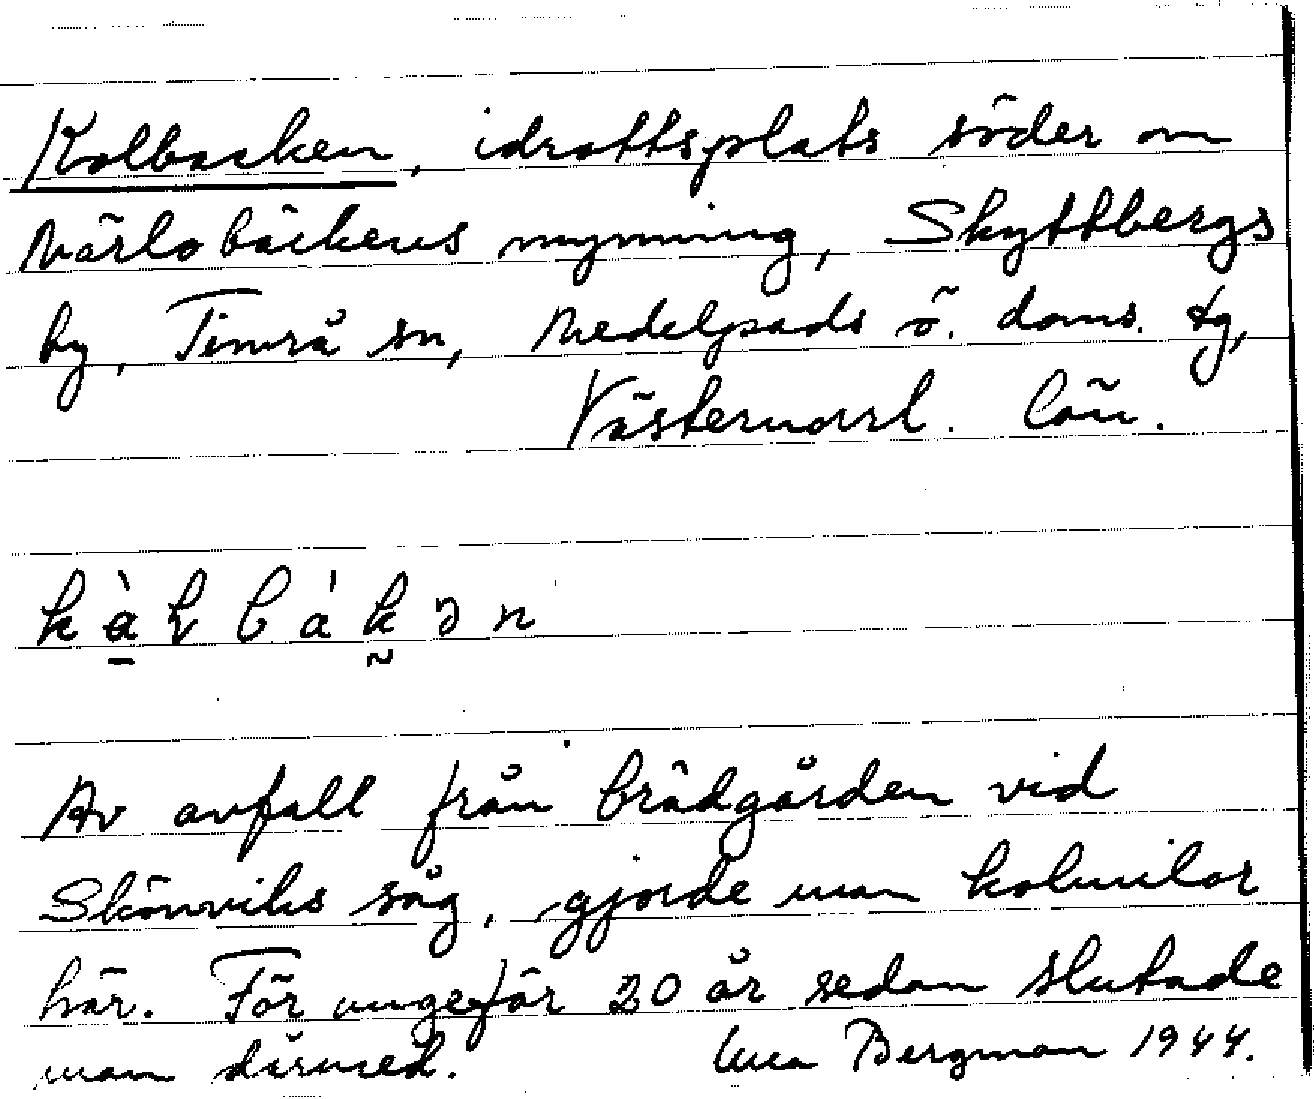 Kolbacken, idrottsplats söder om
Märlobäckens mynning, Skyttbergs
by, Timrå sn, Medelpads ö. doms. tg,
Västernorrl. län.
Av avfall från brädgården vid
Skönviks såg, gjorde man kolmilor
här. För ungefär 20 år sedan slutade
man därmed. Bergman 1944.